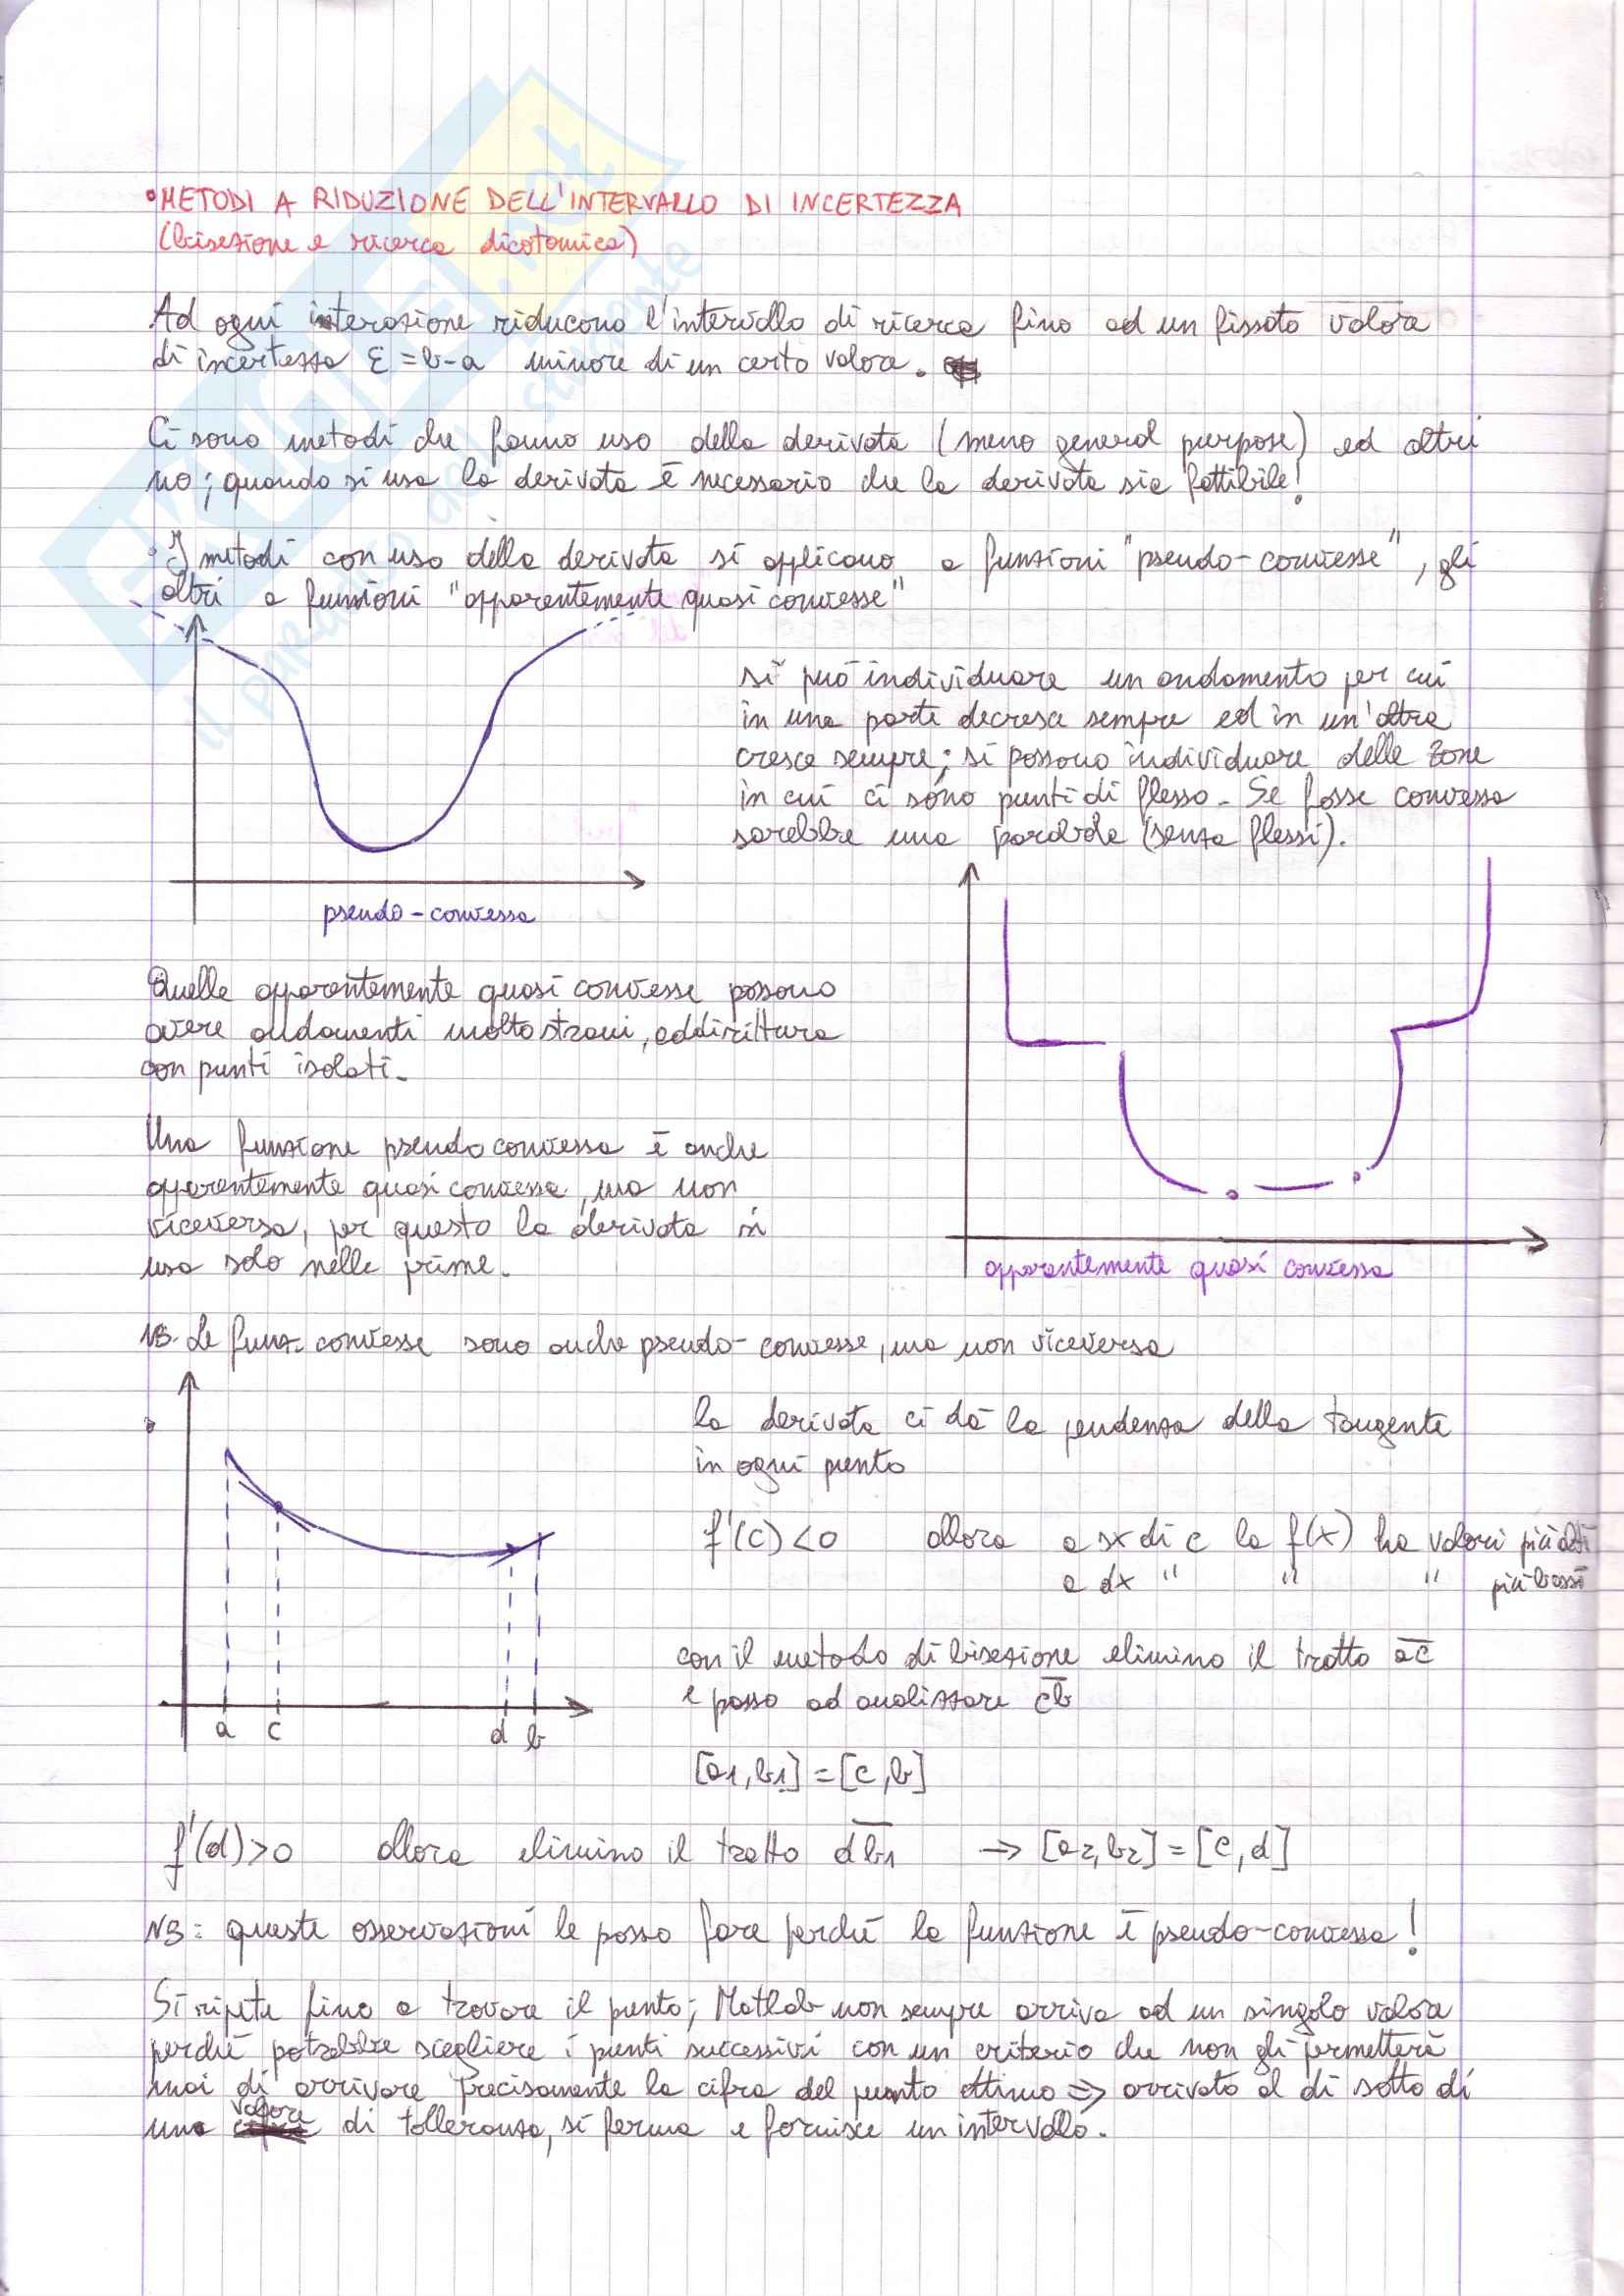 •METODI A RIDUZIONE DELL'INTERVALLO DI INCERTEZZA
(bisezione e ricerca dicotomica)
Ad ogni interazione riducono l'intervallo di ricerca fino ad un fissato valore
di incertezza Ɛ = b-a minore di un certo valore.
Ci sono metodi che fanno uso della derivata (meno general purpose) ed altri
no; quando si usa la derivata è necessario che la derivata sia fattibile!
• I metodi con uso della derivata si applicano a funzioni "pseudo-convesse", gli
altri a funzioni "apparentemente quasi convesse"
si può individuare un andamento per cui
in una parte decresce sempre ed in un'altra
cresce sempre; si possono individuare delle zone
in cui ci sono punti di flesso. Se fosse convessa
sarebbe una parabola (senza flessi).
pseudo-convessa
Quelle apparentemente quasi convesse possono
avere andamenti molto strani, addirittura
con punti isolati.
Una funzione pseudo convessa è anche
apparentemente quasi convessa, ma non
viceversa, per questo la derivata si
usa solo nelle prime.
apparentemente quasi convessa
NB. Le funz. convesse sono anche pseudo-convesse, ma non viceversa
la derivata ci dà la pendenza della tangente
in ogni punto
f'(c) < 0 allora a sx di c la f(x) ha valori più alti
a dx " " " più bassi
con il metodo di bisezione elimino il tratto ac
e passo ad analizzare cb
a c d b
[a1, b1] = [c, b]
f'(d) > 0 allora elimino il tratto db1 → [a2, b2] = [c, d]
NB: queste osservazioni le posso fare perché la funzione è pseudo-convessa!
Si ripete fino a trovare il punto; Matlab non sempre arriva ad un singolo valore
perché potrebbe scegliere i punti successivi con un criterio che non gli permetterà
mai di arrivare precisamente la cifra del punto ottimo ⇒ arrivato al di sotto di
una valore di tolleranza, si ferma e fornisce un intervallo.
il paradiso dello studente